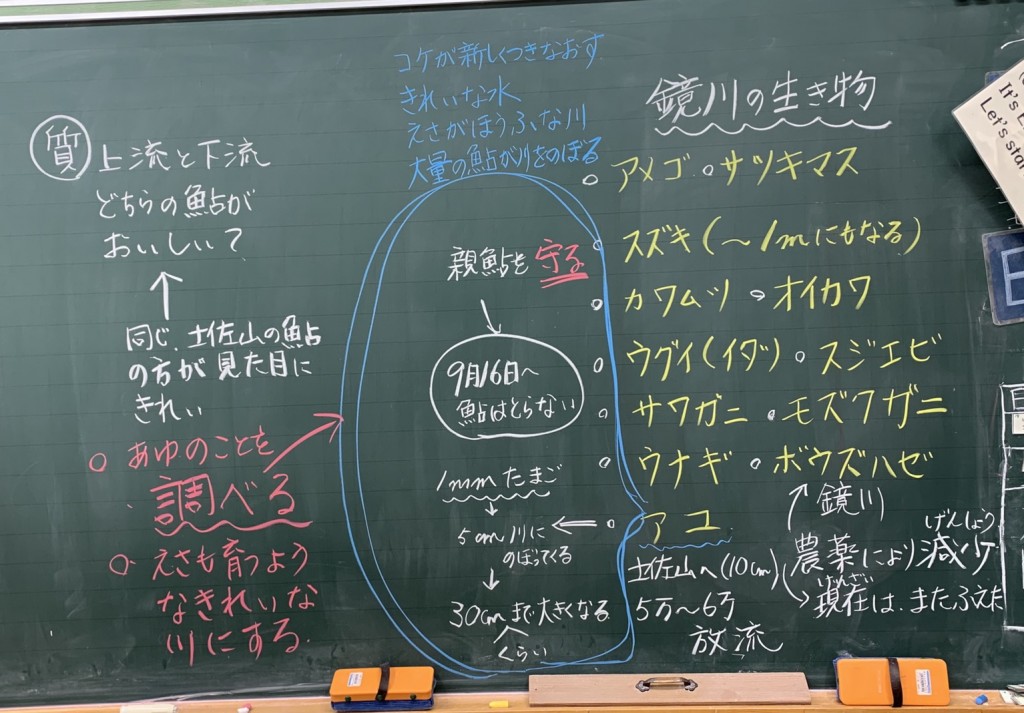 質
上流と下流
どちらの鮎が
おいしい?
同じ、土佐山の鮎
の方が見た目に
きれい
あゆのことを
調べる
えさも育つよう
なきれいな
川にする
コケが新しくつきなおす
きれいな水
えさがほうふな川
大量の鮎が川をのぼる
親鮎を守る
9月16日〜
鮎はとらない
1mmたまご
5cm川に
のぼってくる
30cmまで大きくなる
くらい
鏡川の生き物
アメゴ・サツキマス
スズキ(〜1mにもなる)
カワムツ・オイカワ
ウグイ(イダ)・スジエビ
サワガニ・モズクガニ
ウナギ・ボウズハゼ
アユ
土佐山へ(10cm)
5万〜6万
放流
鏡川
げんしょう
農薬により減少
げんざい
現在は、またふえた
It's
Let's sta